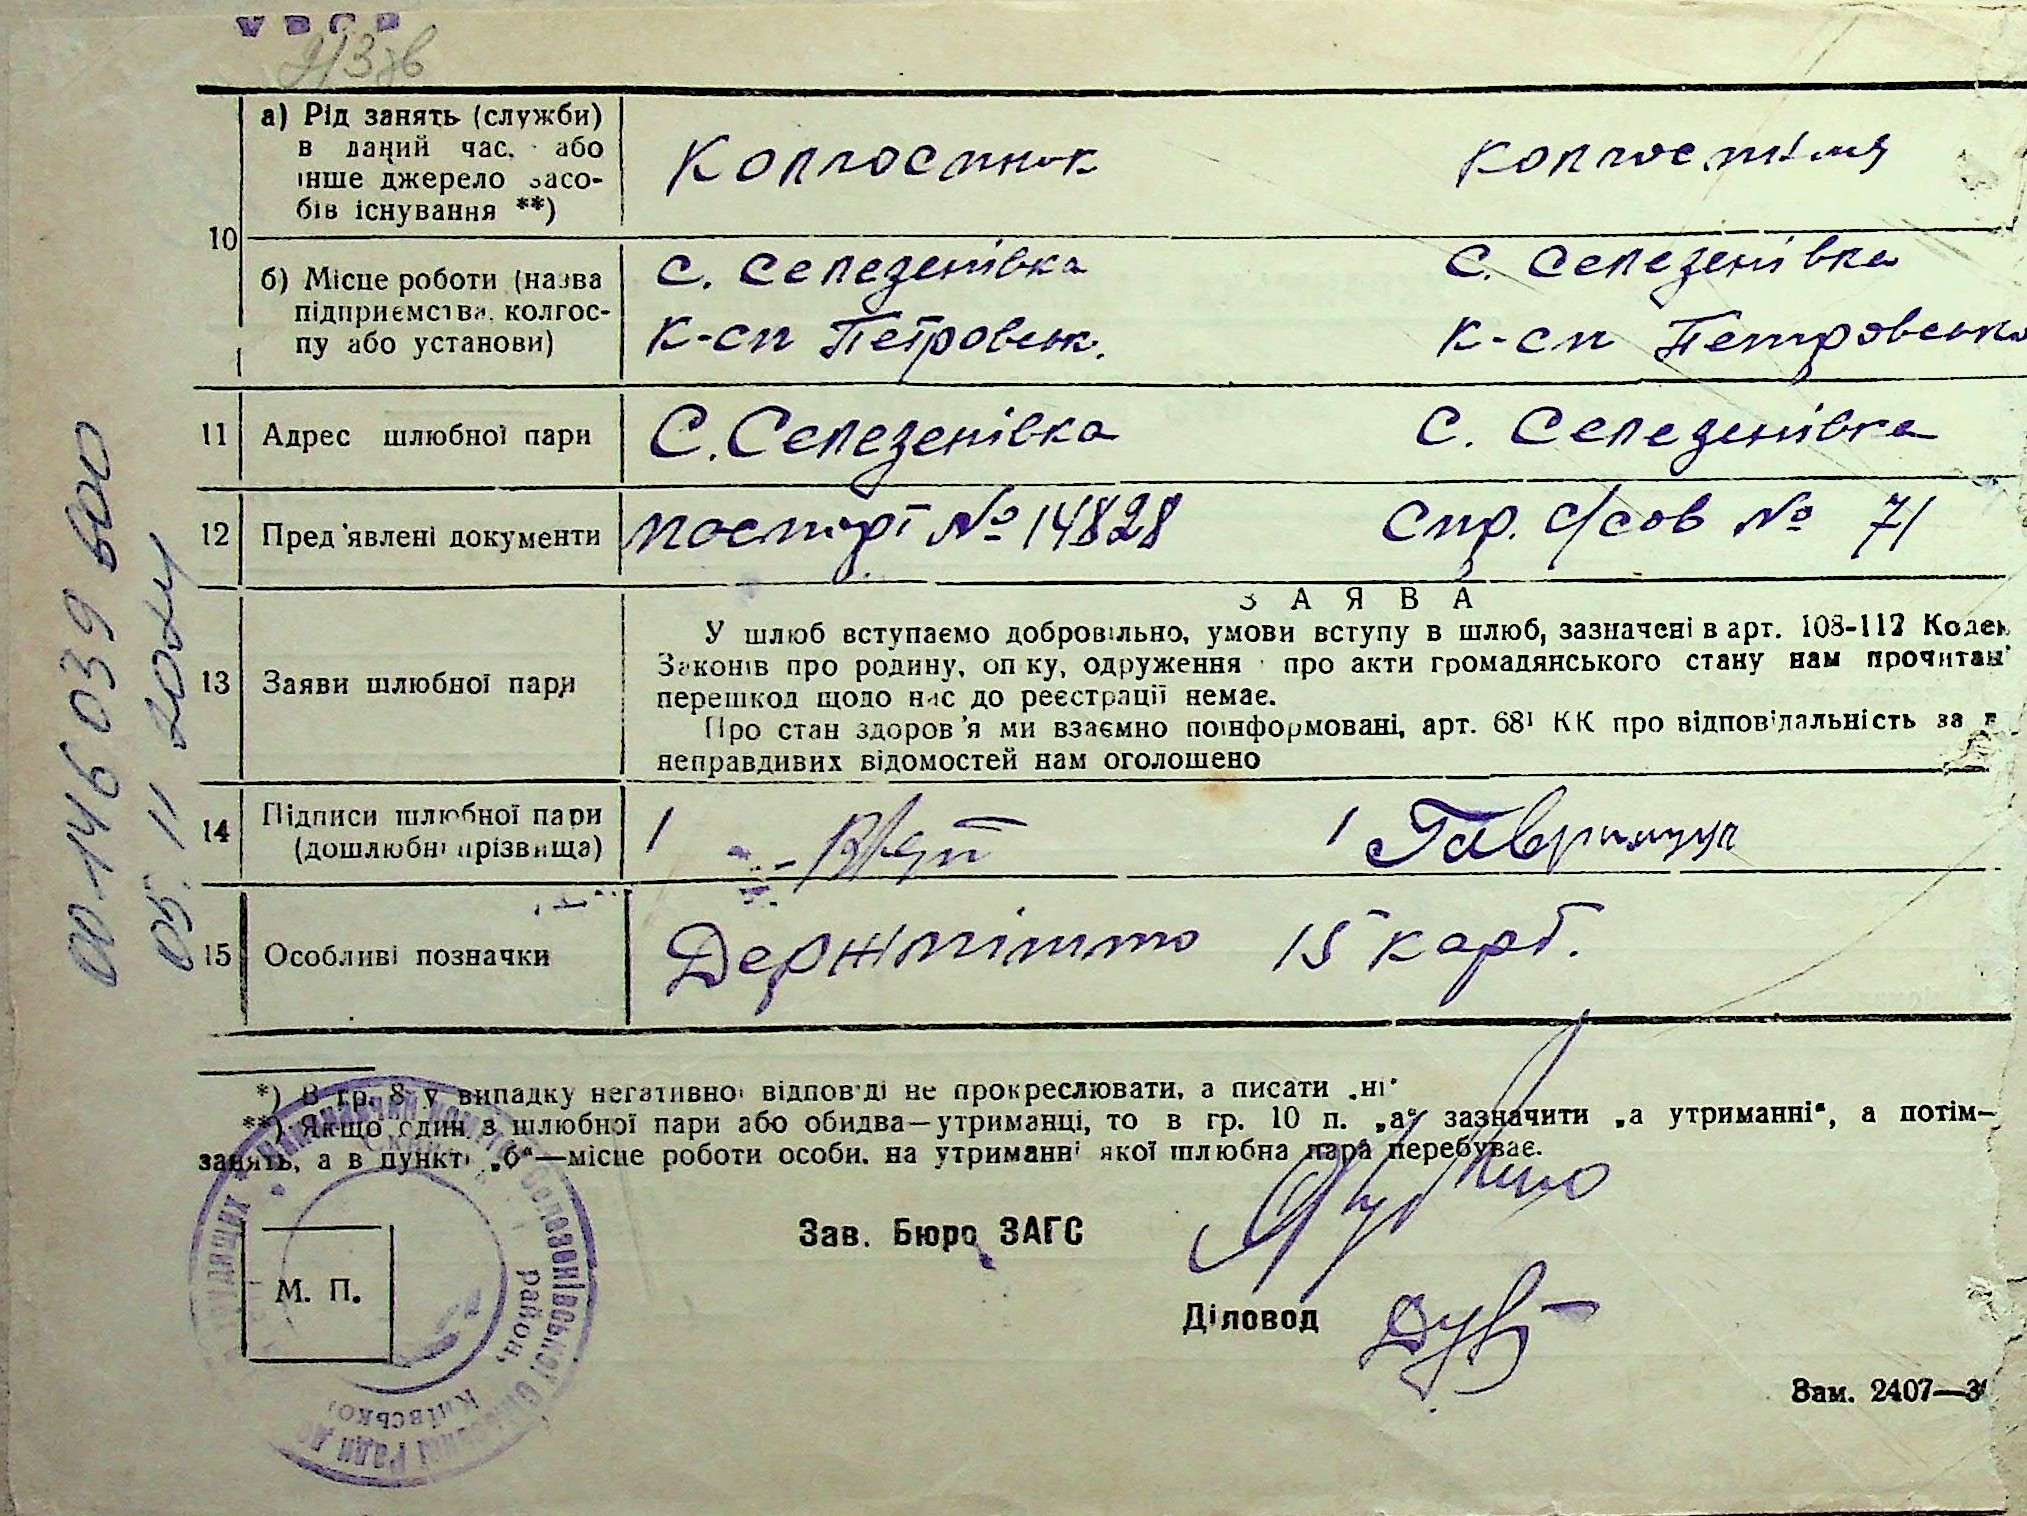 а) Рід занять (служби)
в даний час, або
інше джерело засо-
бів існування **)
Колгоспник
колгоспниця
10
б) Місце роботи (назва
підприємства, колгос-
пу або установи)
с. Селезенівка
к-сп Петровськ.
с. Селезенівка
к-сп Петровськ
11
Адрес шлюбної пари
С. Селезенівка
с. Селезенівка
12
Пред'явлені документи
паспорт № 14828
Спр. с/сов № 71
13
Заяви шлюбної пари
ЗАЯВА
У шлюб вступаємо добровільно, умови вступу в шлюб, зазначені в арт. 108-112 Кодек
Законів про родину, опіку, одруження про акти громадянського стану нам прочитан
перешкод щодо нас до реєстрації немає.
Про стан здоров'я ми взаємно поінформовані, арт. 68¹ КК про відповідальність за
неправдивих відомостей нам оголошено
14
Підписи шлюбної пари
(дошлюбні прізвища)
1
1
15
Особливі позначки
Держмито 15 карб.
*) В гр. 8 у випадку негативної відповіді не прокреслювати, а писати „ні"
**) Якщо один з шлюбної пари або обидва—утриманці, то в гр. 10 п. „а" зазначити „а утриманні", а потім—
занять, а в пункті „б"—місце роботи особи, на утриманні якої шлюбна пара перебуває.
Зав. Бюро ЗАГС
М. П.
Діловод
Зам. 2407—3
00146039
05. 11
район,
Київської